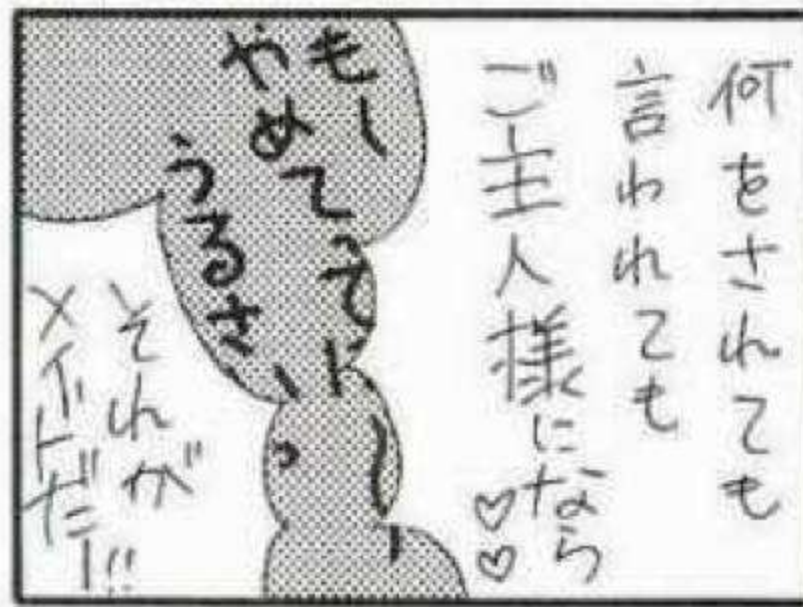 何をされても
言われても
ご主人様になら♡♡
もー
やめてって
うるさいっ
それが
メイドだー!!